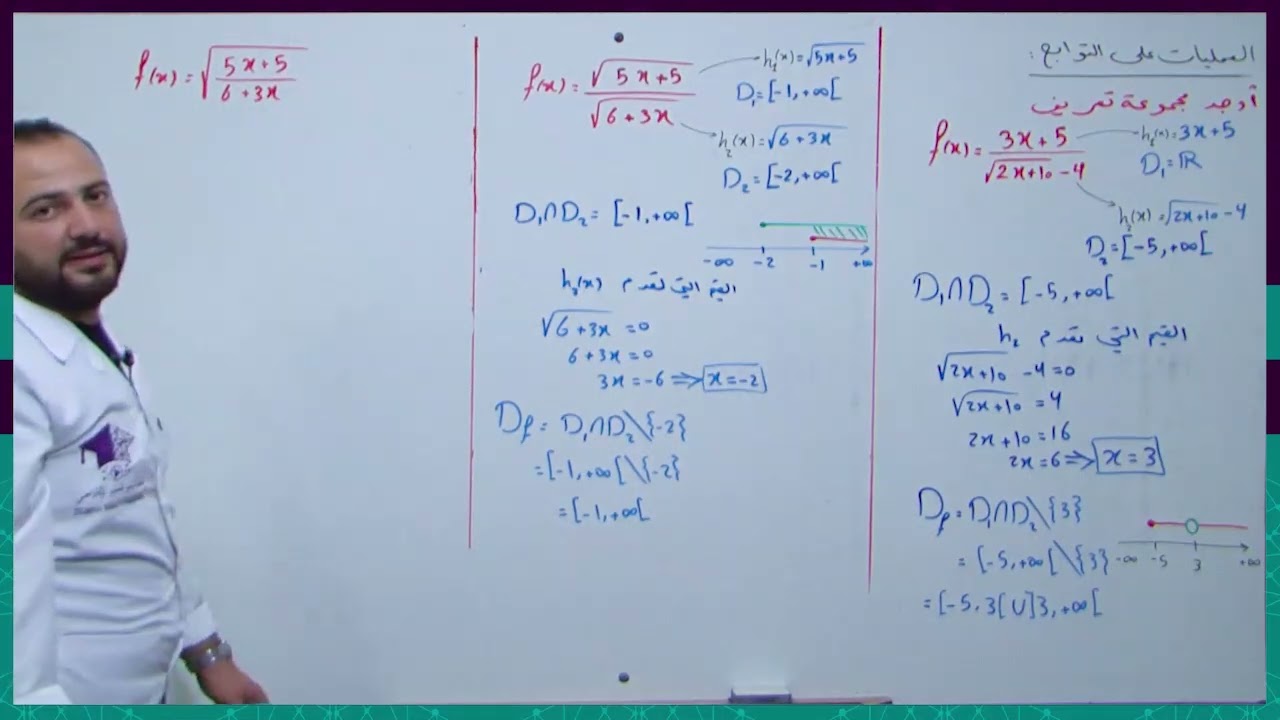 العمليات على التوابع:
أوجد مجموعة تعريف
f(x) = \frac{3x+5}{\sqrt{2x+10} - 4}
h₁(x) = 3x+5
D₁ = ℝ
h₂(x) = √(2x+10) - 4
D₂ = [-5, +∞[
D₁∩D₂ = [-5, +∞[
القيم التي تعدم h₂
√(2x+10) - 4 = 0
√(2x+10) = 4
2x+10 = 16
2x = 6 ⇒ x = 3
D_f = D₁∩D₂\{3}
= [-5, +∞[\{3}
-∞ -5 3 +∞
= [-5, 3[ U ]3, +∞[
f(x) = \frac{\sqrt{5x+5}}{\sqrt{6+3x}}
h₁(x) = √(5x+5)
D₁ = [-1, +∞[
h₂(x) = √(6+3x)
D₂ = [-2, +∞[
D₁∩D₂ = [-1, +∞[
-∞ -2 -1 +∞
القيم التي تعدم h₂(x)
√(6+3x) = 0
6+3x = 0
3x = -6 ⇒ x = -2
D_f = D₁∩D₂\{-2}
= [-1, +∞[\{-2}
= [-1, +∞[
f(x) = \sqrt{\frac{5x+5}{6+3x}}